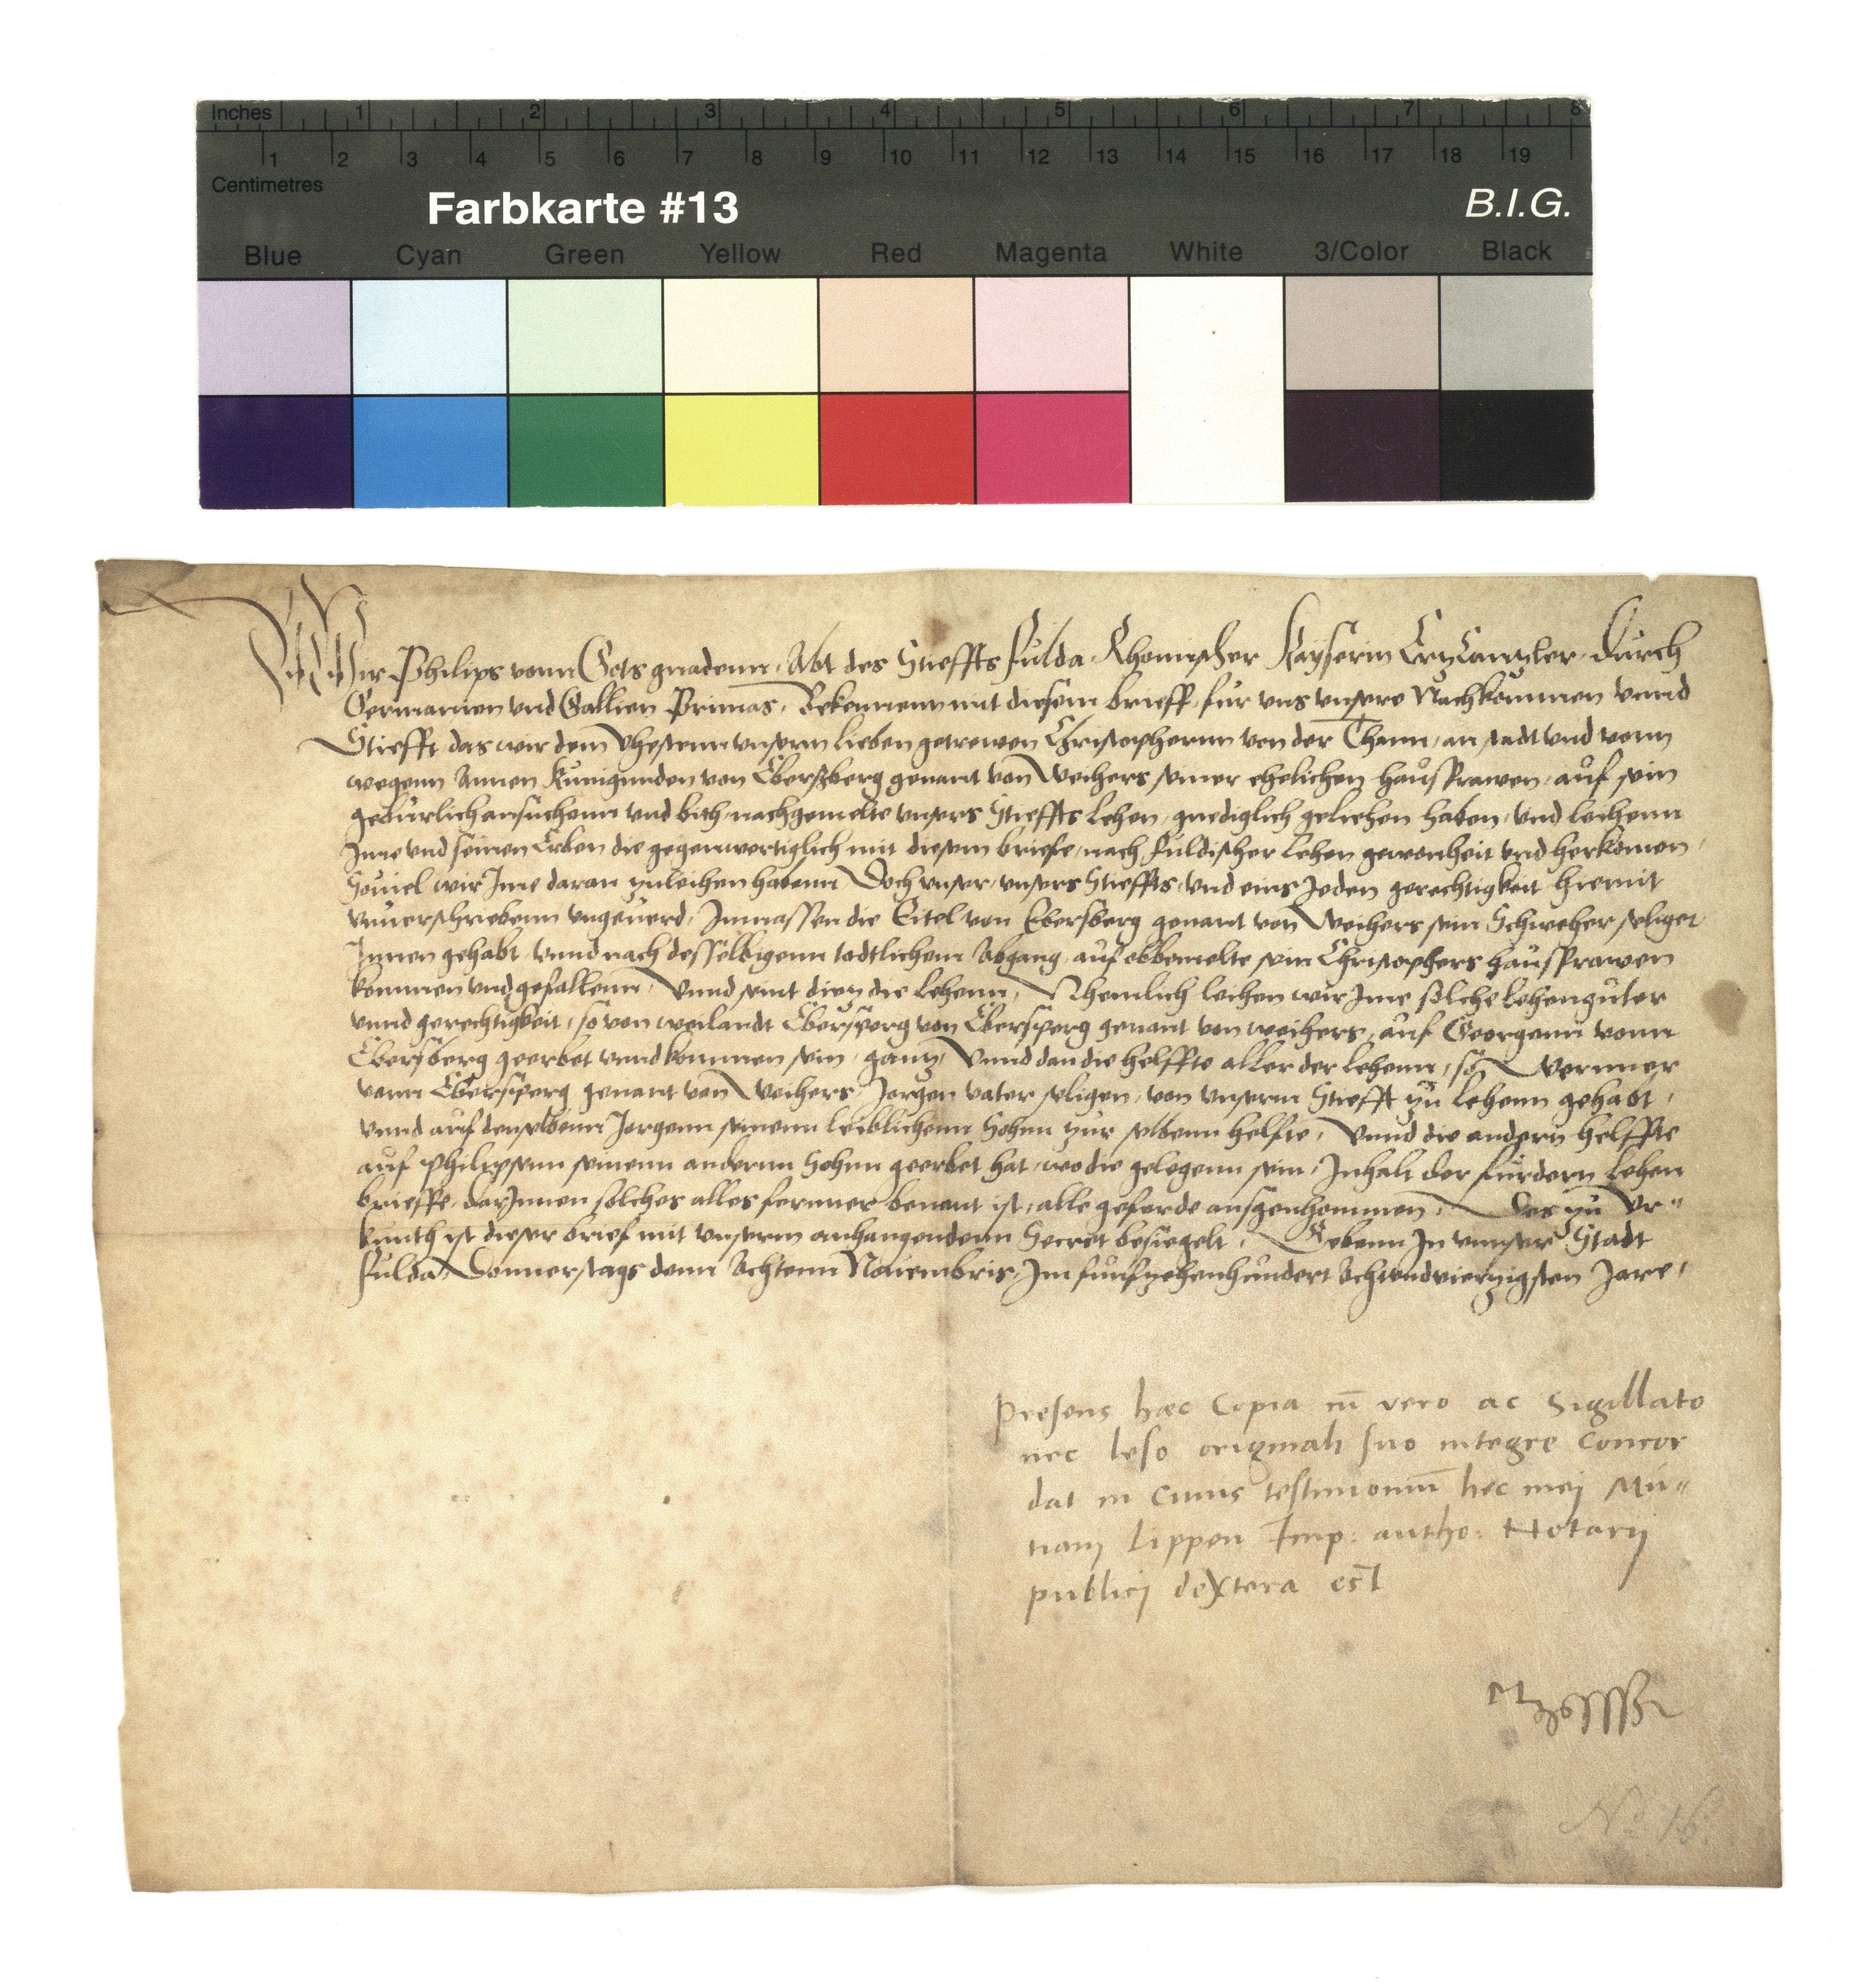 Inches 1 2 3 4 5 6 7 8
1 2 3 4 5 6 7 8 9 10 11 12 13 14 15 16 17 18 19
Centimetres
Farbkarte #13 B.I.G.
Blue Cyan Green Yellow Red Magenta White 3/Color Black
Wir Philips vonn Gots gnadenn, Abt des Stieffts Fulda Rhomischer Kayserin ErtzCanzler, durch
Germanien vnd Gallien Primas, Bekennenn mit diesem brieff, für vns vnsere Nachkommen vnnd
Stiefft das wir dem Vhestenn vnserm lieben getrewen Christophernn von der Thann, an stadt vnd vonn
wegenn Annen Kunigunden von Eberßberg genant von Weihers seiner ehelichen haußfrawen, auf sein
gebürlich ansuchenn vnd bith, nachgemelte vnsers Stieffts Lehen, gnediglich geliehen haben, vnd leihenn
Jme vnd seinen Erben die gegenwertiglich mit diesem briefe, nach fuldischer Lehen gewonheit vnd herkomen,
Souiel wir Jme daran zuleihen habenn, Doch vnser, vnsers Stieffts, vnd eins Jeden gerechtigkeit hiemit
vnuerschriebenn vngeuerd, Jnmassen die Eitel von Ebersberg genant von Weihers sein Schweher seliger
Jnnen gehabt, vnnd nach desselbigenn todtlichem Abgang, auf obbemelte sein Christophers haußfrawen
kommen vnd gefallenn, Vnnd seint dietz die Lehenn, Nhemlich leihen wir Jme solche Lehengüter
vnnd gerechtigkeit, so von weilandt Ebersperg von Ebersperg genant von weihers, auf Georgenn vonn
Ebersberg geerbet vnnd kommen sein, gantz, Vnnd dan die helffte aller der Lehenn, so Wernner
vonn Ebersperg genant von Weihers, Jorgen vater seligen, von vnserm Stiefft zu Lehenn gehabt,
vnnd auf denselbenn Jorgenn seinenn leiblichenn Sohnn zur selbenn helfte, Vnnd die andern helffte
auf Philipsenn seinenn andernn Sohnn geerbet hat, wo die gelegenn sein, Jnhalt der furdern Lehen
brieffe, darJnnen solches alles fernner benent ist, alle geferde ausgenhommen, Des zu Vr-
kunth ist dieser brief mit vnserm anhangendenn Secret besiegelt, Gebenn Jn vnnser Stadt
Fulda, Donnerstags denn Achtenn Nouembris, Jm funfzehenhundert Achtundviertzigsten Jare,
Presens hæc Copia cū vero ac Sigillato
nec leso originali suo integre Concor
dat in cuius testimoniū hec mej Mu-
tianj Lippen Imp: autho: Notarij
publicj dextera est
No 16.